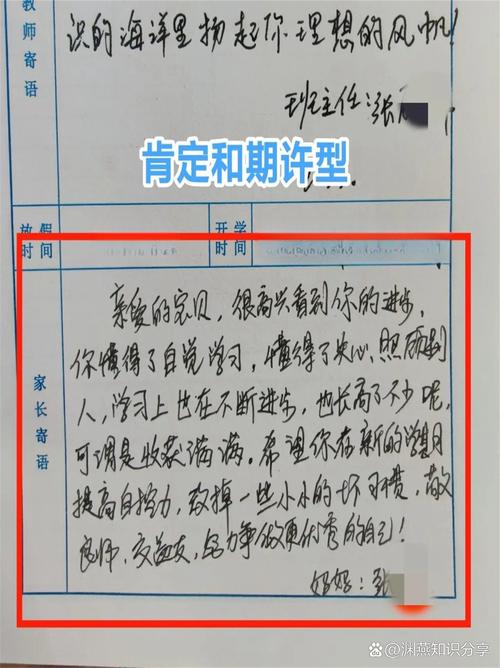 教师寄语
识的海洋里扬起你理想的风帆!
班主任:张
肯定和期许型
放假时间
开学时间
家长寄语
亲爱的宝贝,很高兴看到你的进步,
你懂得了自觉学习,懂得了关心、照顾别
人,学习上也在不断进步,也长高了不少呢,
可谓是收获满满。希望你在新的学期
提高自控力,改掉一些小小的坏习惯,敬
良师,交益友,努力争做更优秀的自己!
妈妈:张
百家号/渊燕知识分享